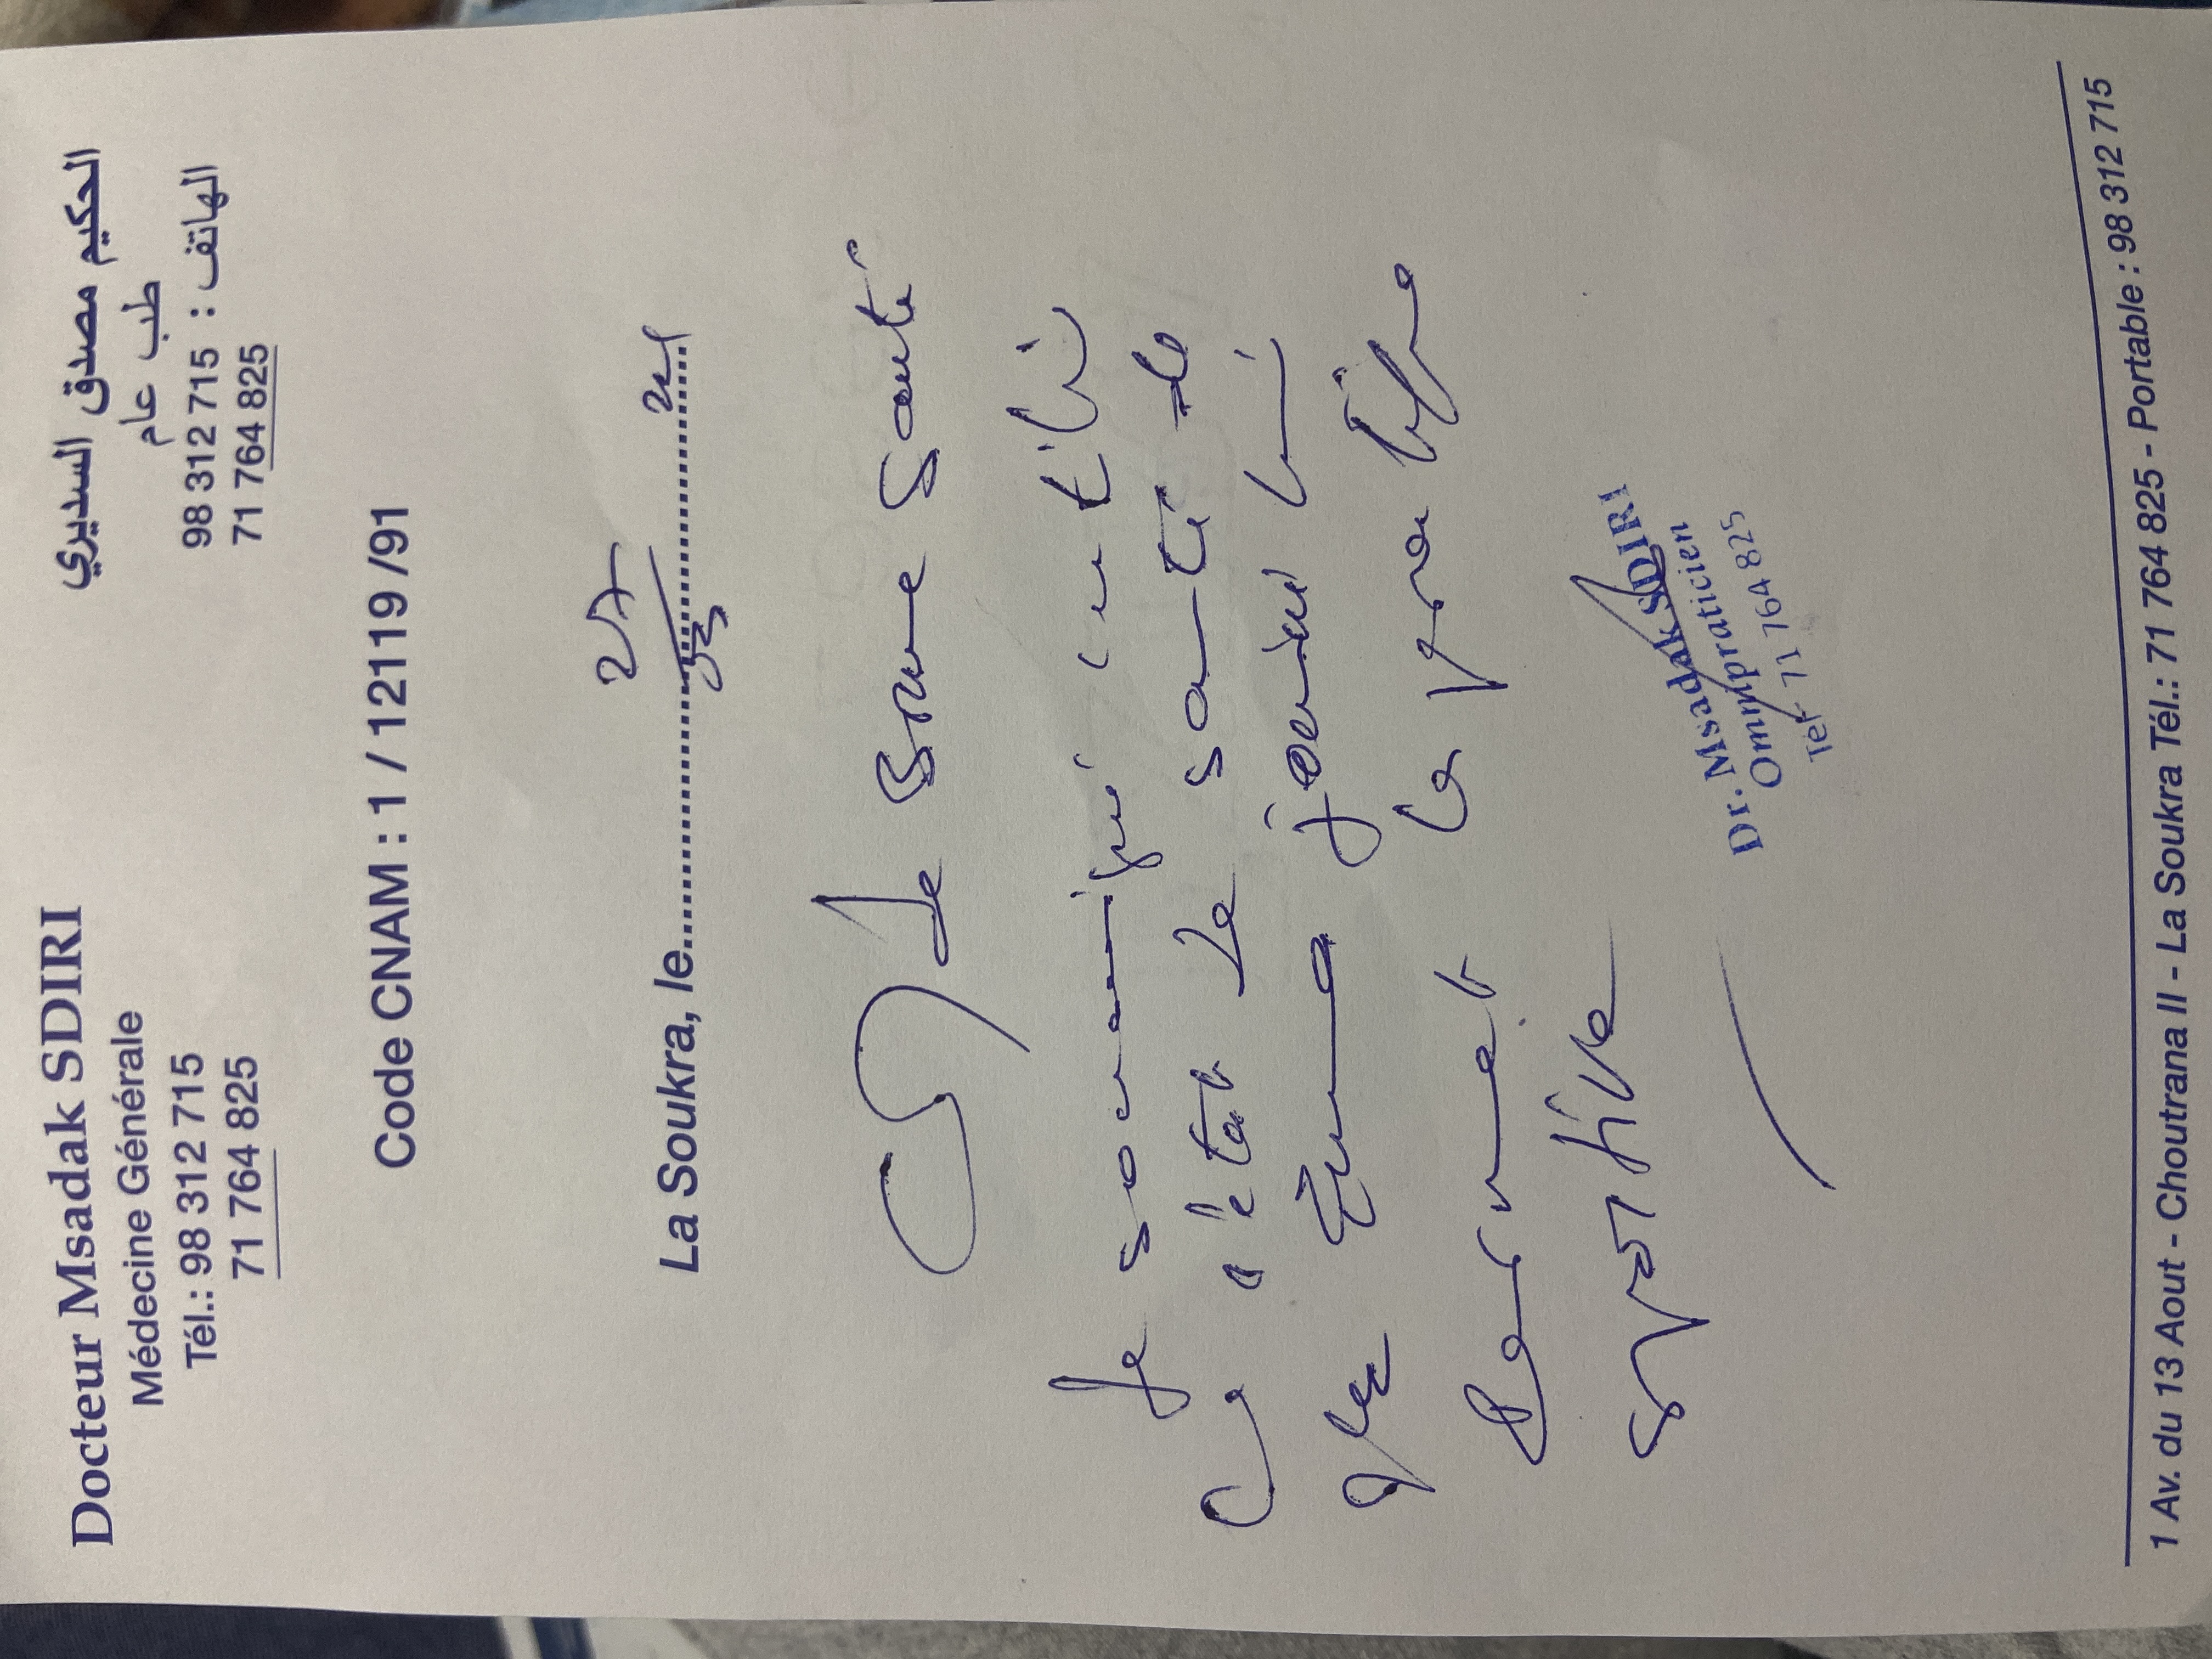 Docteur Msadak SDIRI
Médecine Générale
Tél.: 98 312 715
71 764 825
الحكيم مصدق السديري
طب عام
الهاتف : 98 312 715
71 764 825
Code CNAM : 1 / 12119 /91
La Soukra, le
de Bonne Santé
Je soussigné certifie
l'état de santé de
permet la pratique
sportive
Dr. Msadak SDIRI
Omnipraticien
Tel: 71 764 825
1 Av. du 13 Aout - Choutrana II - La Soukra Tél.: 71 764 825 - Portable : 98 312 715